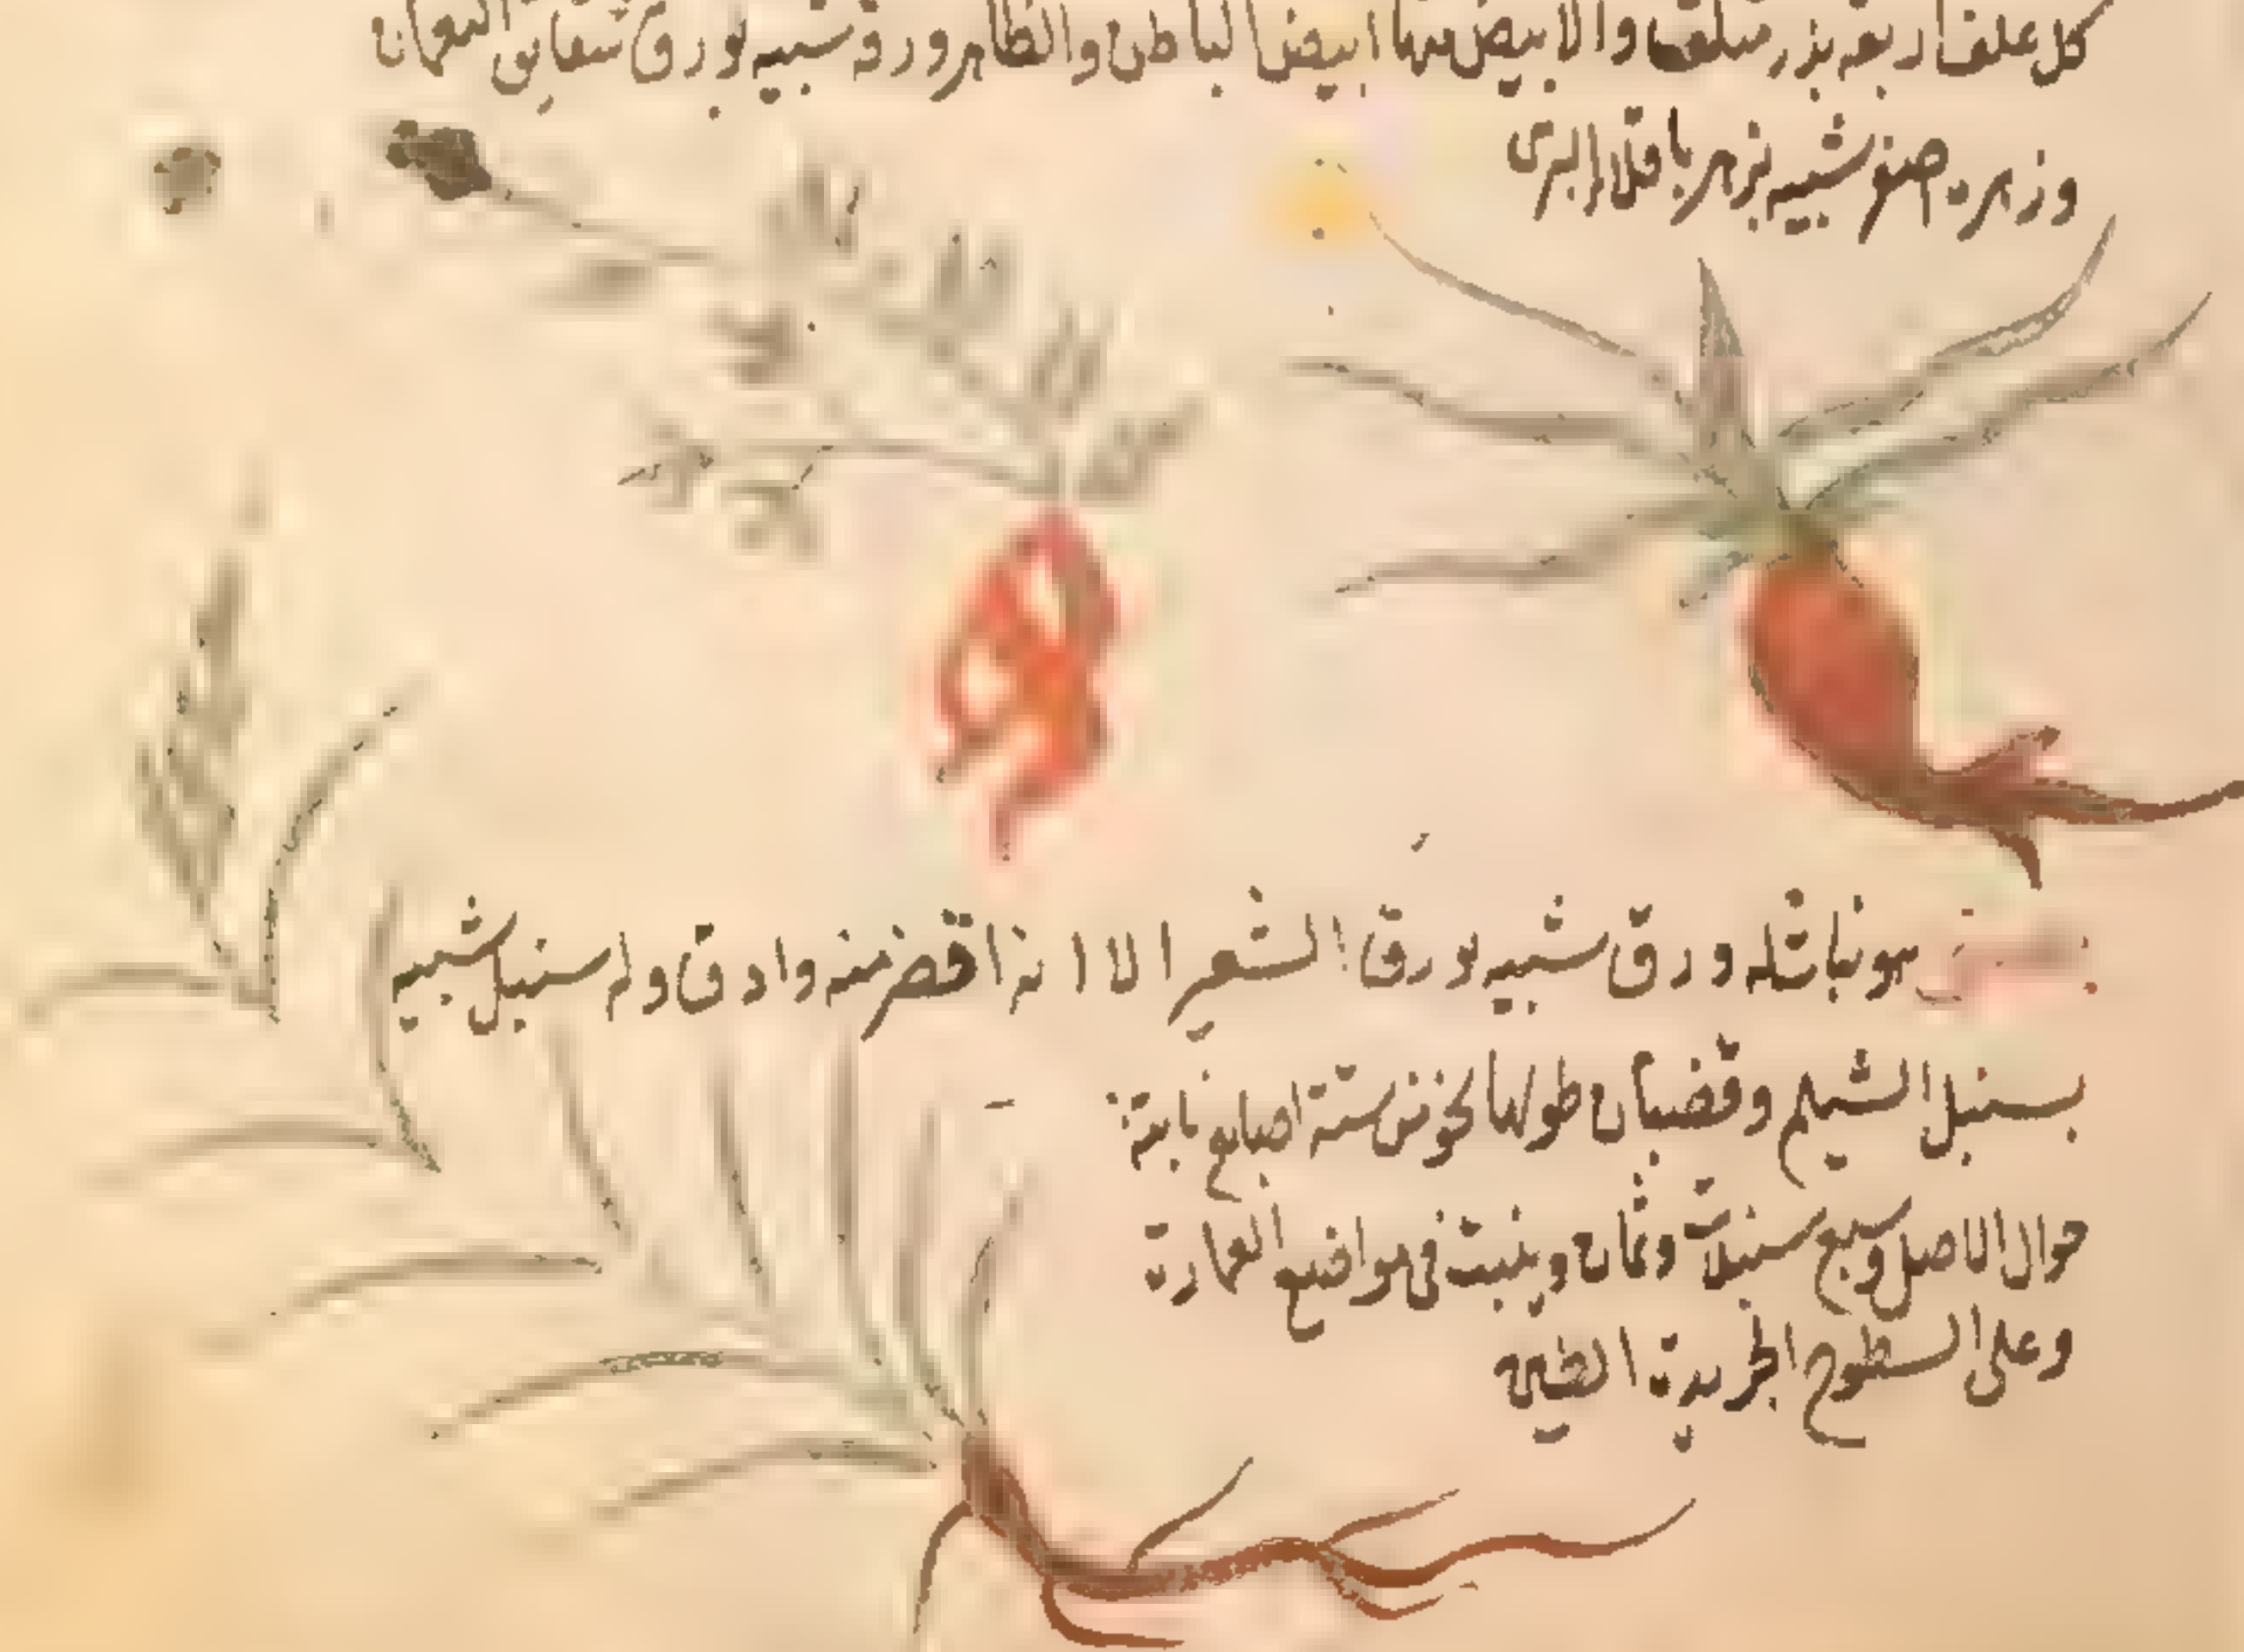 كل علف اربعة بذر متلعق والابيض منها ابيض الباطن والظاهر ورقه شبيه بورق شقايق النعمان
وزهره اصفر شبيه بزهر باقلا البرى
هو نبات له ورق شبيه بورق الشعير الا انه اقصر منه وادق وله سنبل شبيه
بسنبل الشيلم وقضبان طولها نحو من ستة اصابع نابتة
حوال الاصل وسبع سنبلات وثمان وينبت فى مواضع العمارة
وعلى السطوح الجديدة الطين